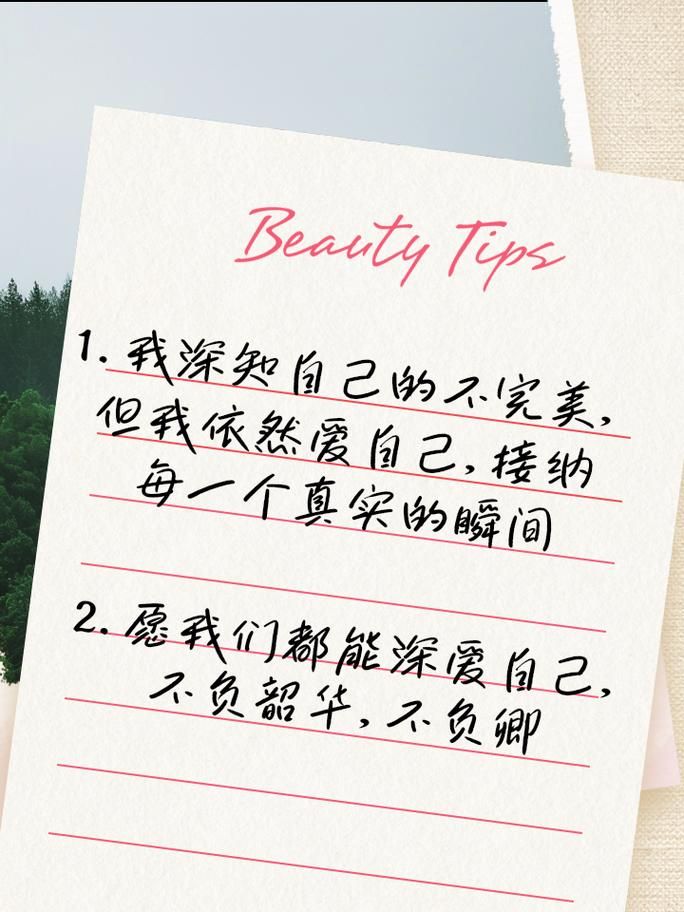 Beauty Tips
1. 我深知自己的不完美,
但我依然爱自己,接纳
每一个真实的瞬间
2. 愿我们都能深爱自己,
不负韶华,不负卿